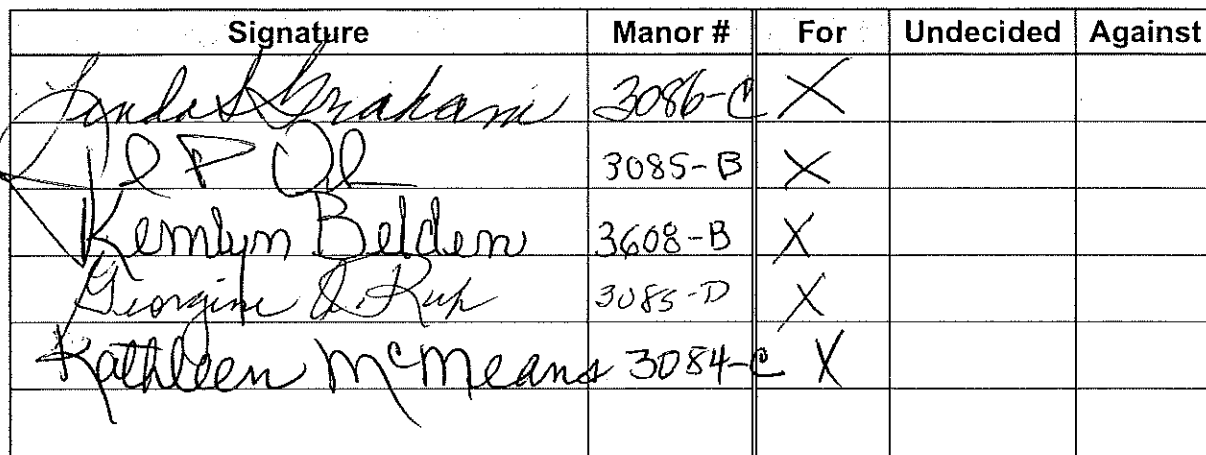 Signature Manor # For Undecided Against
Linda S Graham 3086-C X
3085-B X
Kemlyn Belden 3608-B X
Georgine 3085-D X
Kathleen McMeans 3084-C X